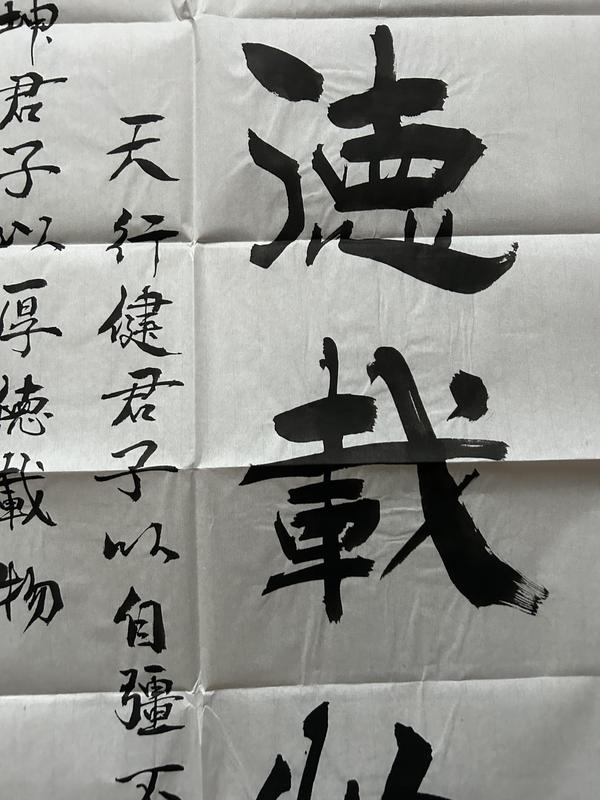 德載
天行健君子以自彊不
坤君子以厚德載物